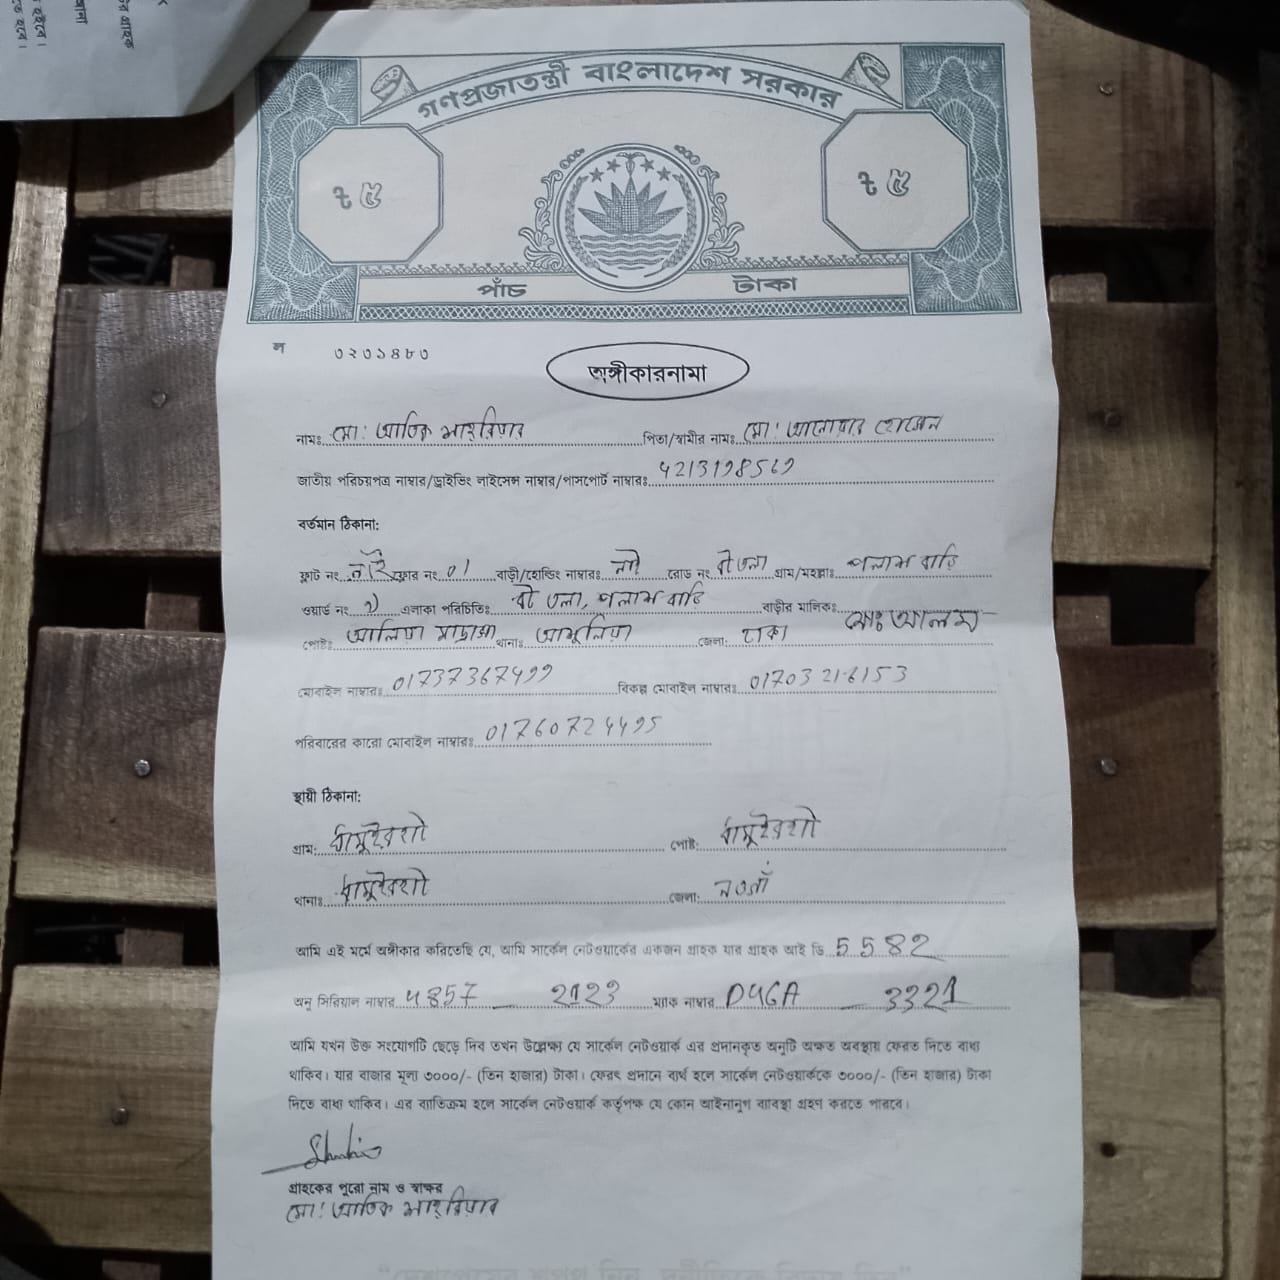 গণপ্রজাতন্ত্রী বাংলাদেশ সরকার
৳ ৫ ৳ ৫
পাঁচ টাকা
ল ৩২৩১৪৮৩
অঙ্গীকারনামা
নামঃ মো: আতিক শাহরিয়ার পিতা/স্বামীর নামঃ মো: আনোয়ার হোসেন
জাতীয় পরিচয়পত্র নাম্বার/ড্রাইভিং লাইসেন্স নাম্বার/পাসপোর্ট নাম্বারঃ
বর্তমান ঠিকানা:
ফ্লাট নং নাই ফ্লোর নং 01 বাড়ী/হোল্ডিং নাম্বারঃ নাই রোড নং বৌ তলা গ্রাম/মহল্লাঃ পলাশ বাড়ি
ওয়ার্ড নং এলাকা পরিচিতিঃ বৌ তলা, পলাশ বাড়ি বাড়ীর মালিকঃ মোঃ আলম
পোষ্টঃ আলিয়া মাদ্রাসা থানাঃ আশুলিয়া জেলা: ঢাকা
মোবাইল নাম্বারঃ 01737367499 বিকল্প মোবাইল নাম্বারঃ 01703216153
পরিবারের কারো মোবাইল নাম্বারঃ
স্থায়ী ঠিকানা:
গ্রাম: ধামুইরহাট পোষ্ট: ধামুইরহাট
থানাঃ ধামুইরহাট জেলা: নওগাঁ
আমি এই মর্মে অঙ্গীকার করিতেছি যে, আমি সার্কেল নেটওয়ার্কের একজন গ্রাহক যার গ্রাহক আই ডি 5582
অনু সিরিয়াল নাম্বার ম্যাক নাম্বার 3321
আমি যখন উক্ত সংযোগটি ছেড়ে দিব তখন উল্লেক্ষ্য যে সার্কেল নেটওয়ার্ক এর প্রদানকৃত অনুটি অক্ষত অবস্থায় ফেরত দিতে বাধ্য
থাকিব। যার বাজার মূল্য ৩০০০/- (তিন হাজার) টাকা। ফেরৎ প্রদানে ব্যর্থ হলে সার্কেল নেটওয়ার্ককে ৩০০০/- (তিন হাজার) টাকা
দিতে বাধ্য থাকিব। এর ব্যতিক্রম হলে সার্কেল নেটওয়ার্ক কর্তৃপক্ষ যে কোন আইনানুগ ব্যাবস্থা গ্রহণ করতে পারবে।
গ্রাহকের পুরো নাম ও স্বাক্ষর
মো: আতিক শাহরিয়ার